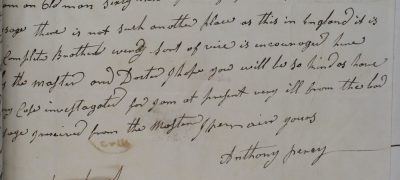 an old man
there is not such another place as this in England it is
Complete Brothel every sort of vice is encouraged here
the master and Docter I hope you will be so kind as have
my Case investagated for I am at present very ill from the bad
usage I received from the Master I remain yours
Anthony